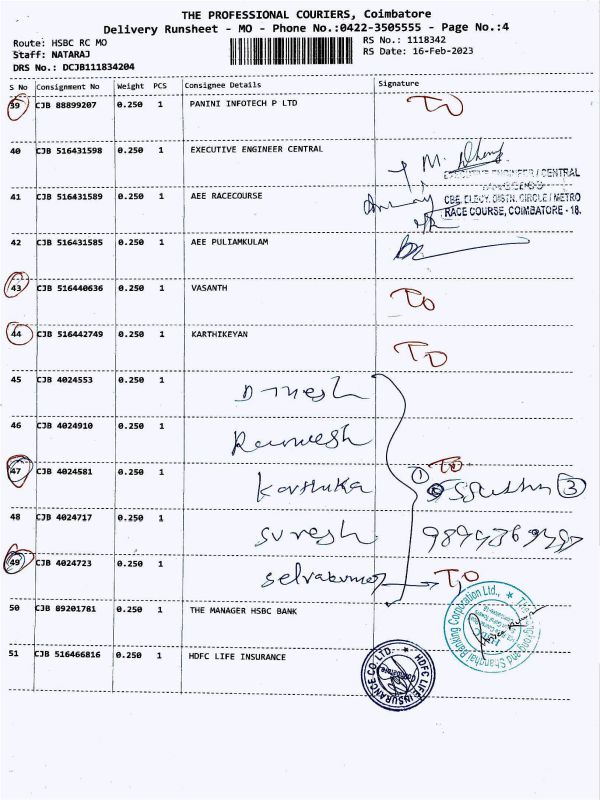 THE PROFESSIONAL COURIERS, Coimbatore
Delivery Runsheet - MO - Phone No.:0422-3505555 - Page No.:4
Route: HSBC RC MO
RS No.: 1118342
Staff: NATARAJ
RS Date: 16-Feb-2023
DRS No.: DCJB111834204
S No Consignment No Weight PCS Consignee Details Signature
39 CJB 88899207 0.250 1 PANINI INFOTECH P LTD TD
40 CJB 516431598 0.250 1 EXECUTIVE ENGINEER CENTRAL M.
EXECUTIVE ENGINEER / CENTRAL
41 CJB 516431589 0.250 1 AEE RACECOURSE
CBE. ELECY. DISTN. CIRCLE / METRO
RACE COURSE, COIMBATORE - 18.
42 CJB 516431585 0.250 1 AEE PULIAMKULAM
43 CJB 516440636 0.250 1 VASANTH TD
44 CJB 516442749 0.250 1 KARTHIKEYAN TD
45 CJB 4024553 0.250 1 Dinesh
46 CJB 4024910 0.250 1 Ramesh
47 CJB 4024581 0.250 1 Karthika 1 TD 3
48 CJB 4024717 0.250 1 Suresh
49 CJB 4024723 0.250 1 Selvakumar TD
50 CJB 89201781 0.250 1 THE MANAGER HSBC BANK
The Hongkong and Shanghai Banking Corporation Ltd.,
51 CJB 516466816 0.250 1 HDFC LIFE INSURANCE
HDFC LIFE INSURANCE CO LTD.
Coimbatore